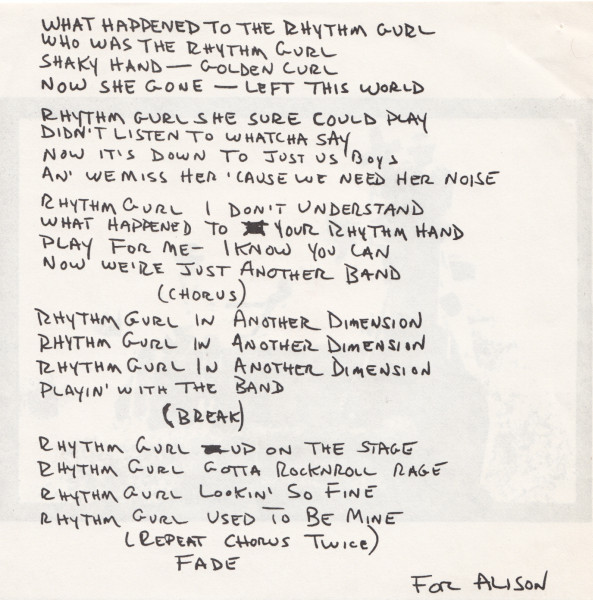 WHAT HAPPENED TO THE RHYTHM GURL
WHO WAS THE RHYTHM GURL
SHAKY HAND — GOLDEN CURL
NOW SHE GONE — LEFT THIS WORLD
RHYTHM GURL SHE SURE COULD PLAY
DIDN'T LISTEN TO WHATCHA SAY
NOW IT'S DOWN TO JUST US BOYS
AN' WE MISS HER 'CAUSE WE NEED HER NOISE
RHYTHM GURL I DON'T UNDERSTAND
WHAT HAPPENED TO YOUR RHYTHM HAND
PLAY FOR ME — I KNOW YOU CAN
NOW WE'RE JUST ANOTHER BAND
(CHORUS)
RHYTHM GURL IN ANOTHER DIMENSION
RHYTHM GURL IN ANOTHER DIMENSION
RHYTHM GURL IN ANOTHER DIMENSION
PLAYIN' WITH THE BAND
(BREAK)
RHYTHM GURL UP ON THE STAGE
RHYTHM GURL GOTTA ROCKNROLL RAGE
RHYTHM GURL LOOKIN' SO FINE
RHYTHM GURL USED TO BE MINE
(REPEAT CHORUS TWICE)
FADE
FOR ALISON